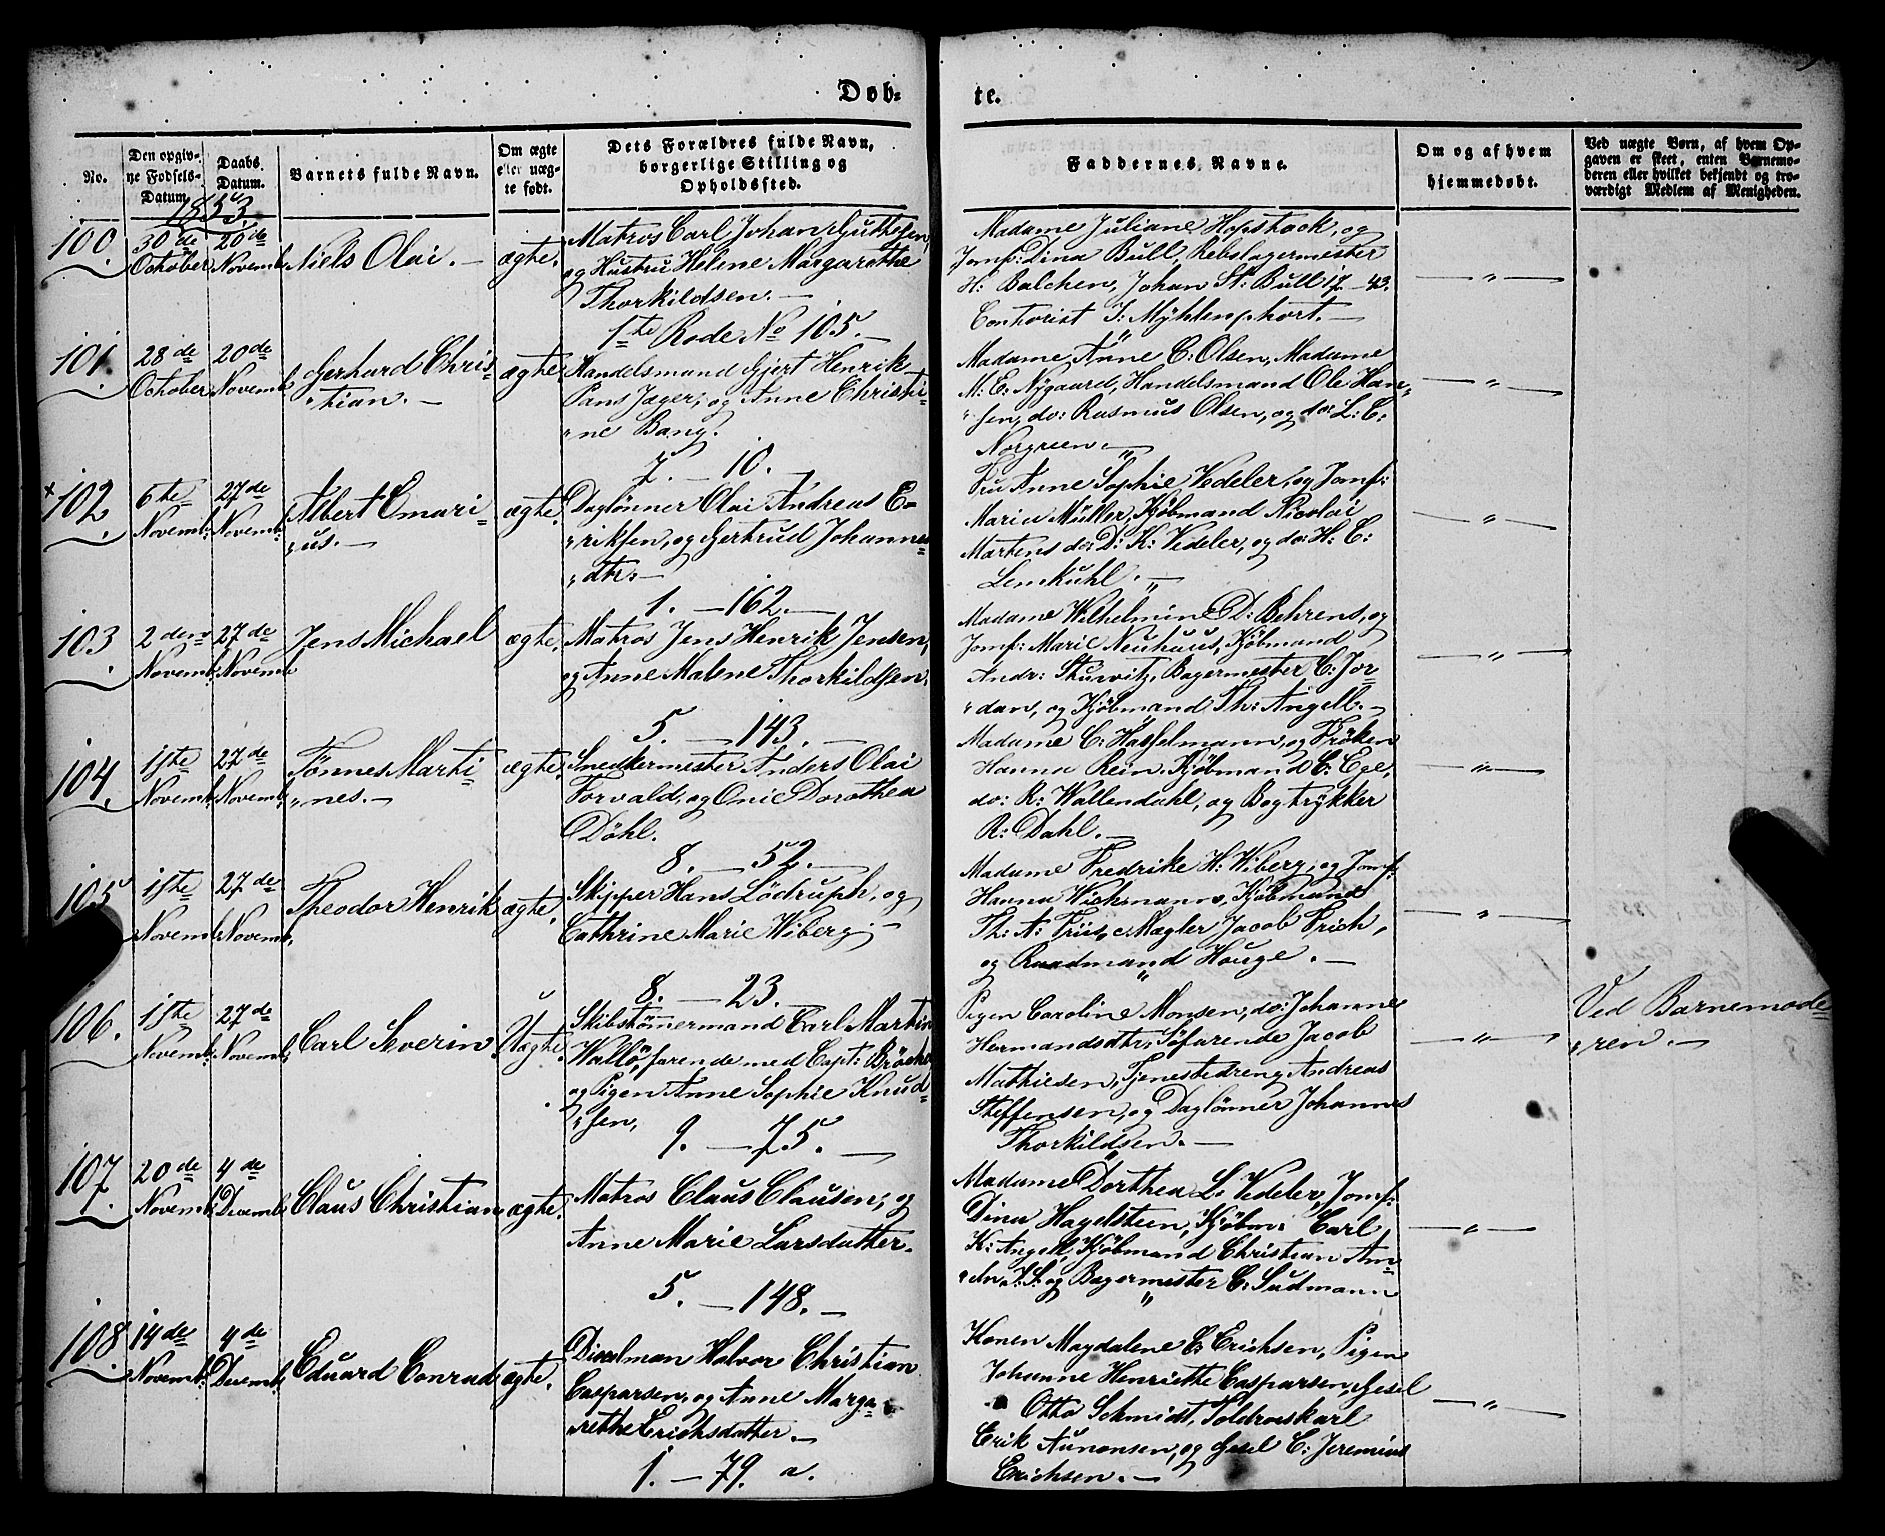 Døb-
te.
No.
Den opgiv-
ne Fødsels-
Datum.
Daabs
Datum.
Barnets fulde Navn.
Om ægte
eller uæg-
te født.
Dets Forældres fulde Navn,
borgerlige Stilling og
Opholdssted.
Faddernes Navne.
Om og af hvem
hjemmedøbt.
Ved uægte Børn, af hvem Op-
gaven er skeet, enten Barnemo-
deren eller hvilket bekjendt og tro-
værdigt Medlem af Menigheden.
1853.
100.
30de
October
20de
Novemb:
Niels Olai. —
ægte.
Matros Carl Johan
og Hustru Helene Margarethe
Thorkildsen. —
1ste Rode No 105. —
Madame Juliane Hopstock, og
Jomf: Dina Bull, Rebslagermester
H: Balchen, Johan St: Bull
Contorist J: Mÿhlenphort. —
— " —
101.
28de
October
20de
Novemb:
Gerhard Chris=
"tian. —
ægte.
Handelsmand Gjert Henrik
Pans Jæger, og Anne Christi=
"ne Bang.
7. — 10. —
Madame Anne C: Olsen, Madame
M: E: Nygaard, Handelsmand Ole Han=
"sen, do: Rasmus Olsen, og do: L: C:
Norgreen. —
— " —
×102.
6te
Novemb:
27de
Novemb:
Albert Emari=
"us. —
ægte.
Daglönner Olai Andreas E=
"riksen, og Gertrud Johannes=
"dtr. —
1. — 162. —
Fru Anne Sophie Vedeler, og Jomf:
Maria Müller, Kjöbmand Nicolai
Martens do: D: K: Vedeler, og do: H: C:
Lemkühl. —
— " —
103.
2den
Novemb:
27de
Novemb:
Jens Michael
ægte.
Matros Jens Henrik Jensen,
og Anne Malene Thorkildsen.
5. — 143. —
Madame Wilhelmine D: Behrens, og
Jomf: Marie Neuhaus, Kjöbmand
Andr: Sturvitz, Bagermester C: Jor=
"dan, og Kjöbmand Th: Angell. —
— " —
104.
1ste
Novemb:
27de
Novemb:
Tönnes Marti=
"nes. —
ægte.
Snedkermester Anders Olai
Forvald, og Onie Dorothea
Döhl.
8. — 52. —
Madame C: Hasselmann, og Fröken
Hanna Rein, Kjöbmand C: Ege,
do: R: Wallendahl, og Bogtrÿkker
R: Dahl. —
— " —
105
1ste
Novemb:
27de
Novemb:
Theodor Henrik
ægte.
Skipper Hans Lödruph, og
Cathrine Marie Wiberg. —
8. — 23. —
Madame Fredrike H: Wiberg, og Jomf:
Hanna Wiehmann, Kjöbmand
Th: A: Friis, Mægler Jacob Frich,
og Raadmand Houge. —
— " —
106.
1ste
Novemb:
27de
Novemb:
Carl Severin
Uægte.
Skibstömmermand Carl Martin
Wallö, farende med Capt:
og Pigen Anne Sophie Knud=
"sen,
9. — 75. —
Pigen Caroline Monsen, do: Johanne
Hermandsdtr, Söfarende Jacob
Mathiesen, Tjenestedreng Andreas
Steffensen, og Daglönner Johannes
Thorkildsen. —
— " —
Ved Barnemode=
"ren. —
107.
20de
Novemb:
4de
Decemb:
Claus Christian
ægte.
Matros Claus Clausen, og
Anne Marie Larsdatter.
5. — 148. —
Madame Dorthea L: Vedeler, Jomf:
Dina Hagelsteen, Kjöbm: Carl
K: Angell, Kjöbmand Christian Am=
og Bagermester C: Sudmann
— " —
108.
14de
Novemb:
4de
Decemb:
Eduard Conrad
ægte.
Halvor Christian
Casparsen, og Anne Marga=
"rethe Erichsdatter. —
1. — 79. a.
Konen Magdalene E: Erichsen, Pigen
Johanne Henriette Casparsen, Gesel
Otto Schmidt, Toldroeskarl
Erik Aunonsen, og Gesel C: Jeremias
Erichsen. —
— " —